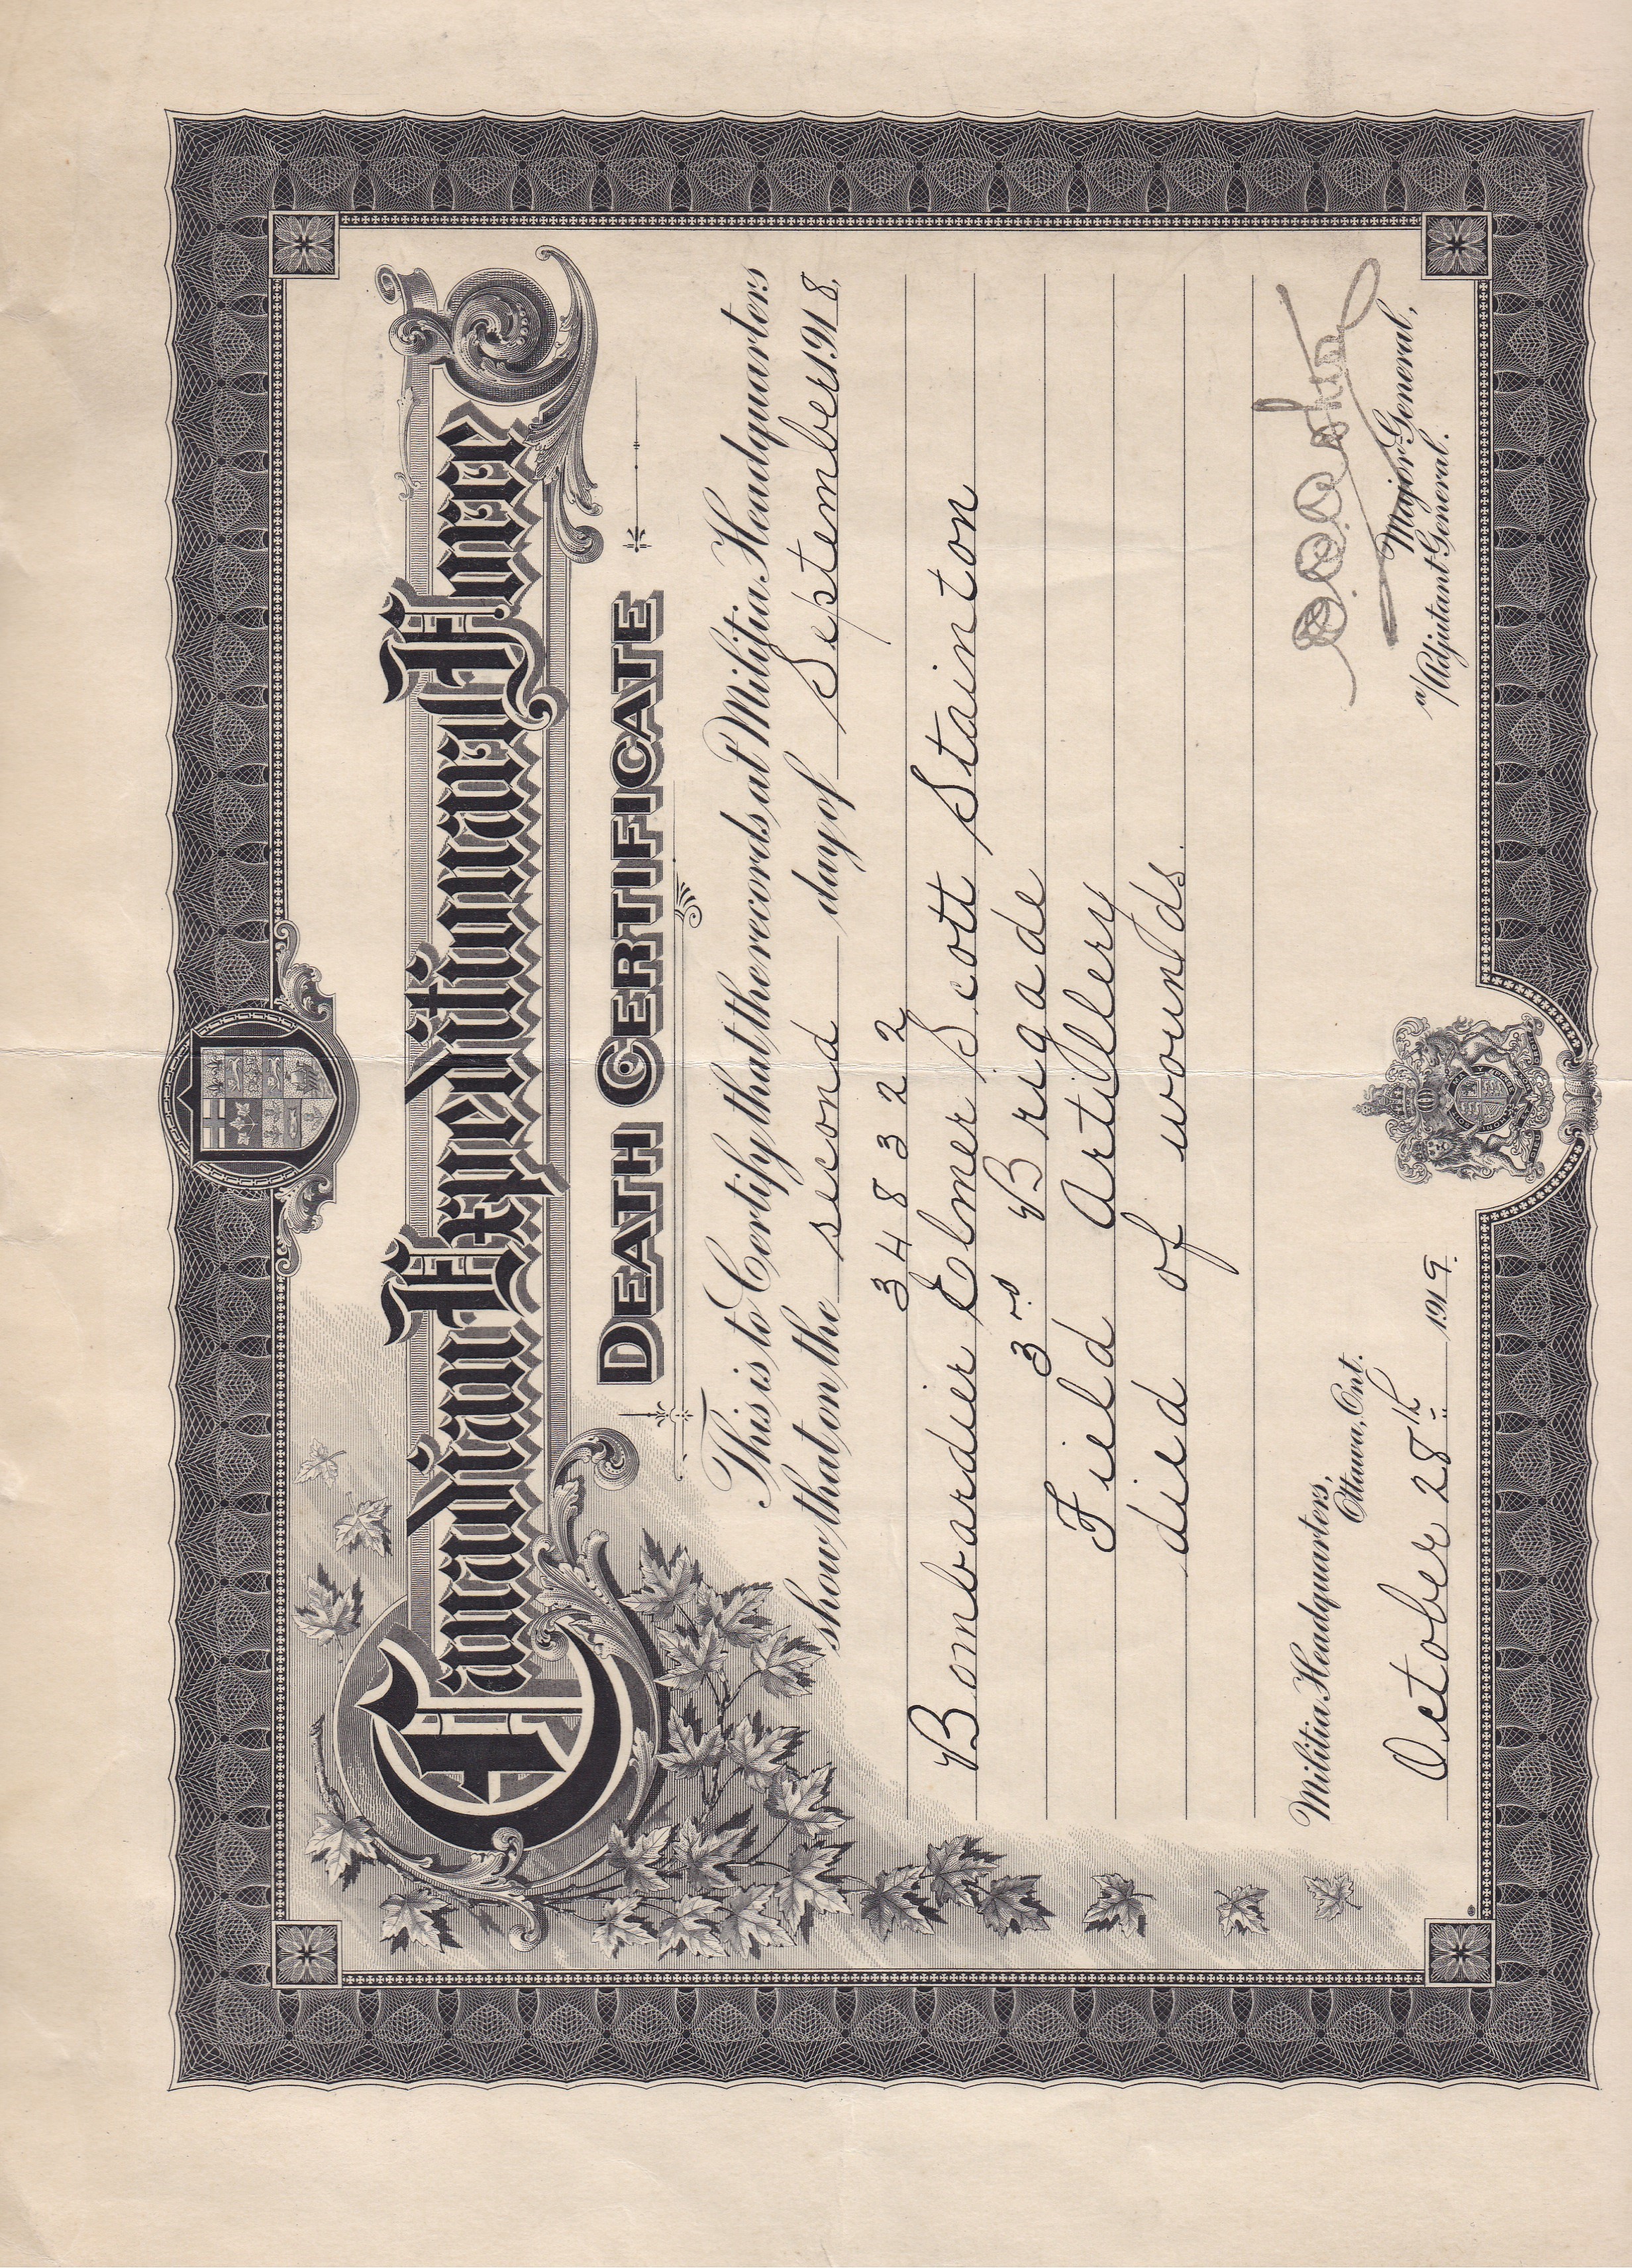 Canadian Expeditionary Force
DEATH CERTIFICATE
This is to Certify that the records at Militia Headquarters
show that on the second day of September 1918.
348322
Bombardier Elmer Scott Stainton
3rd Brigade
Field Artillery
died of wounds.
Militia Headquarters,
Ottawa, Ont.
October 28th 1919.
Major General,
a/Adjutant General.